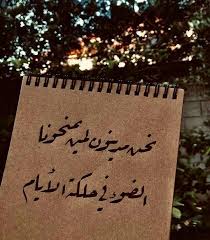 نحن مدينون لمن يمنحونا
الضوء في حلكة الأيام